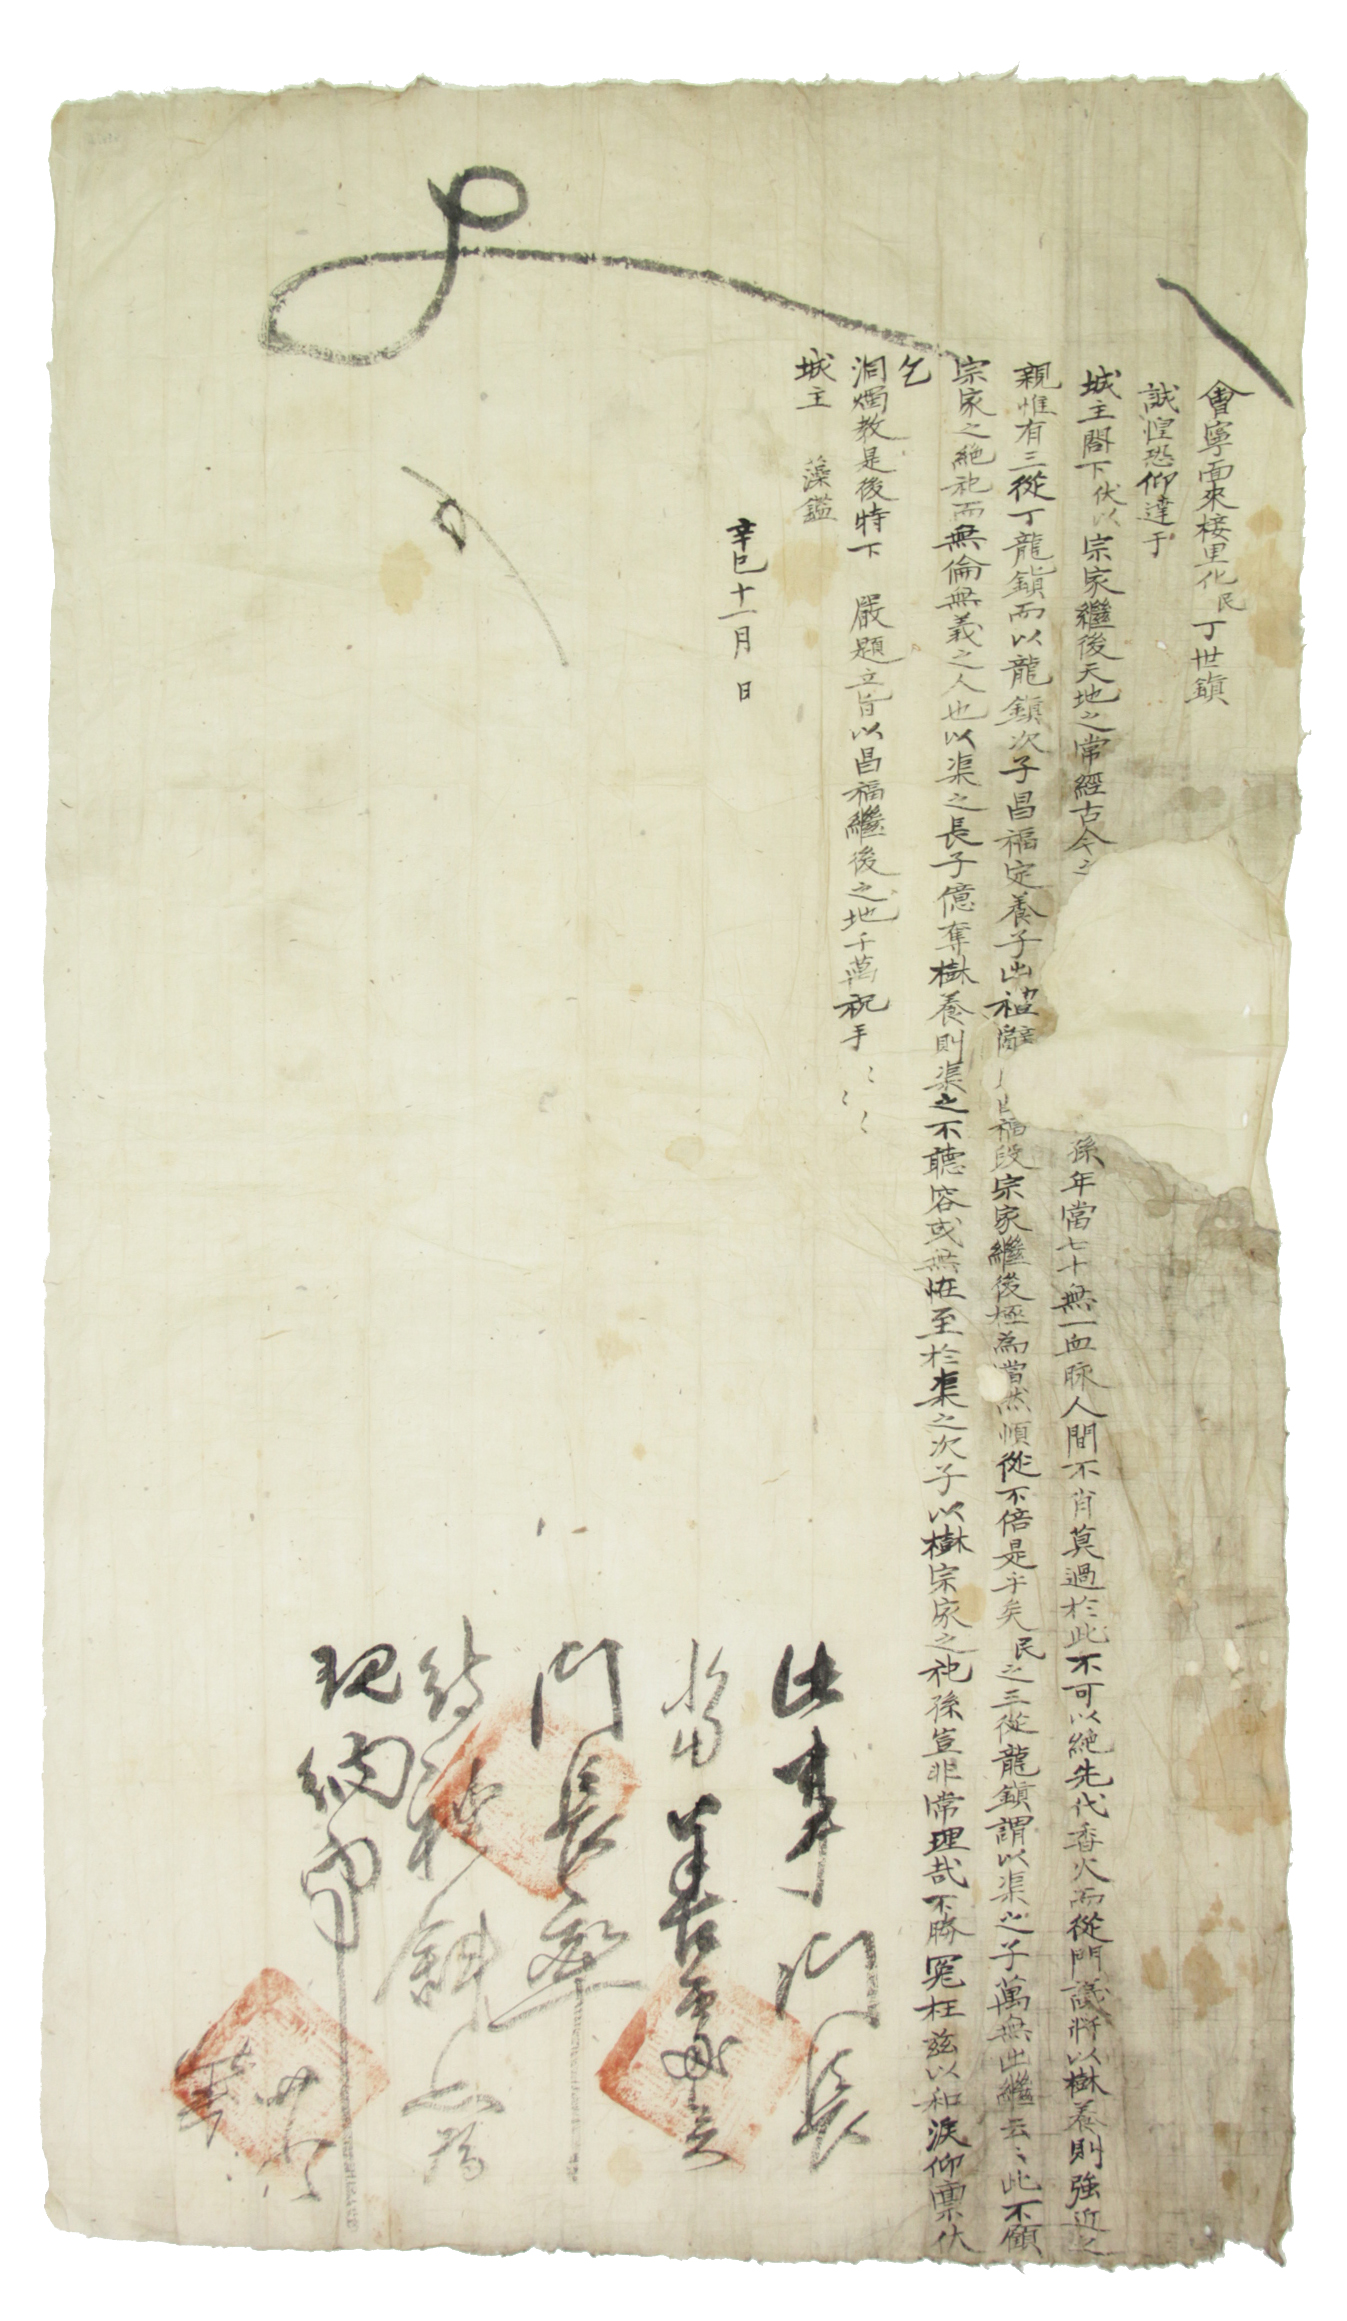 會寧面來接里化民丁世鎭
誠惶恐仰達于
城主閤下伏以宗家繼後天地之常經古今之 孫年當七十無一血脉人間不肖莫過於此不可以絶先代香火而從門議將以樹養則強近之
親惟有三從丁龍鎭而以龍鎭次子昌福定養子出禮 福段宗家繼後極爲當然順從不倍是乎矣民之三從龍鎭謂以渠之子萬無出繼云〻此不願
宗家之絶祀而無倫無義之人也以渠之長子億奪樹養則渠之不聽容或無恠至於渠之次子以樹宗家之祀孫豈非常理哉不勝寃枉玆以和淚仰稟伏
乞
洞燭敎是後特下 嚴題立旨以昌福繼後之地千萬祝手〻〻〻
城主 藻鑑
辛巳十一月 日
此事門長
當 
門長率
待 
現納事